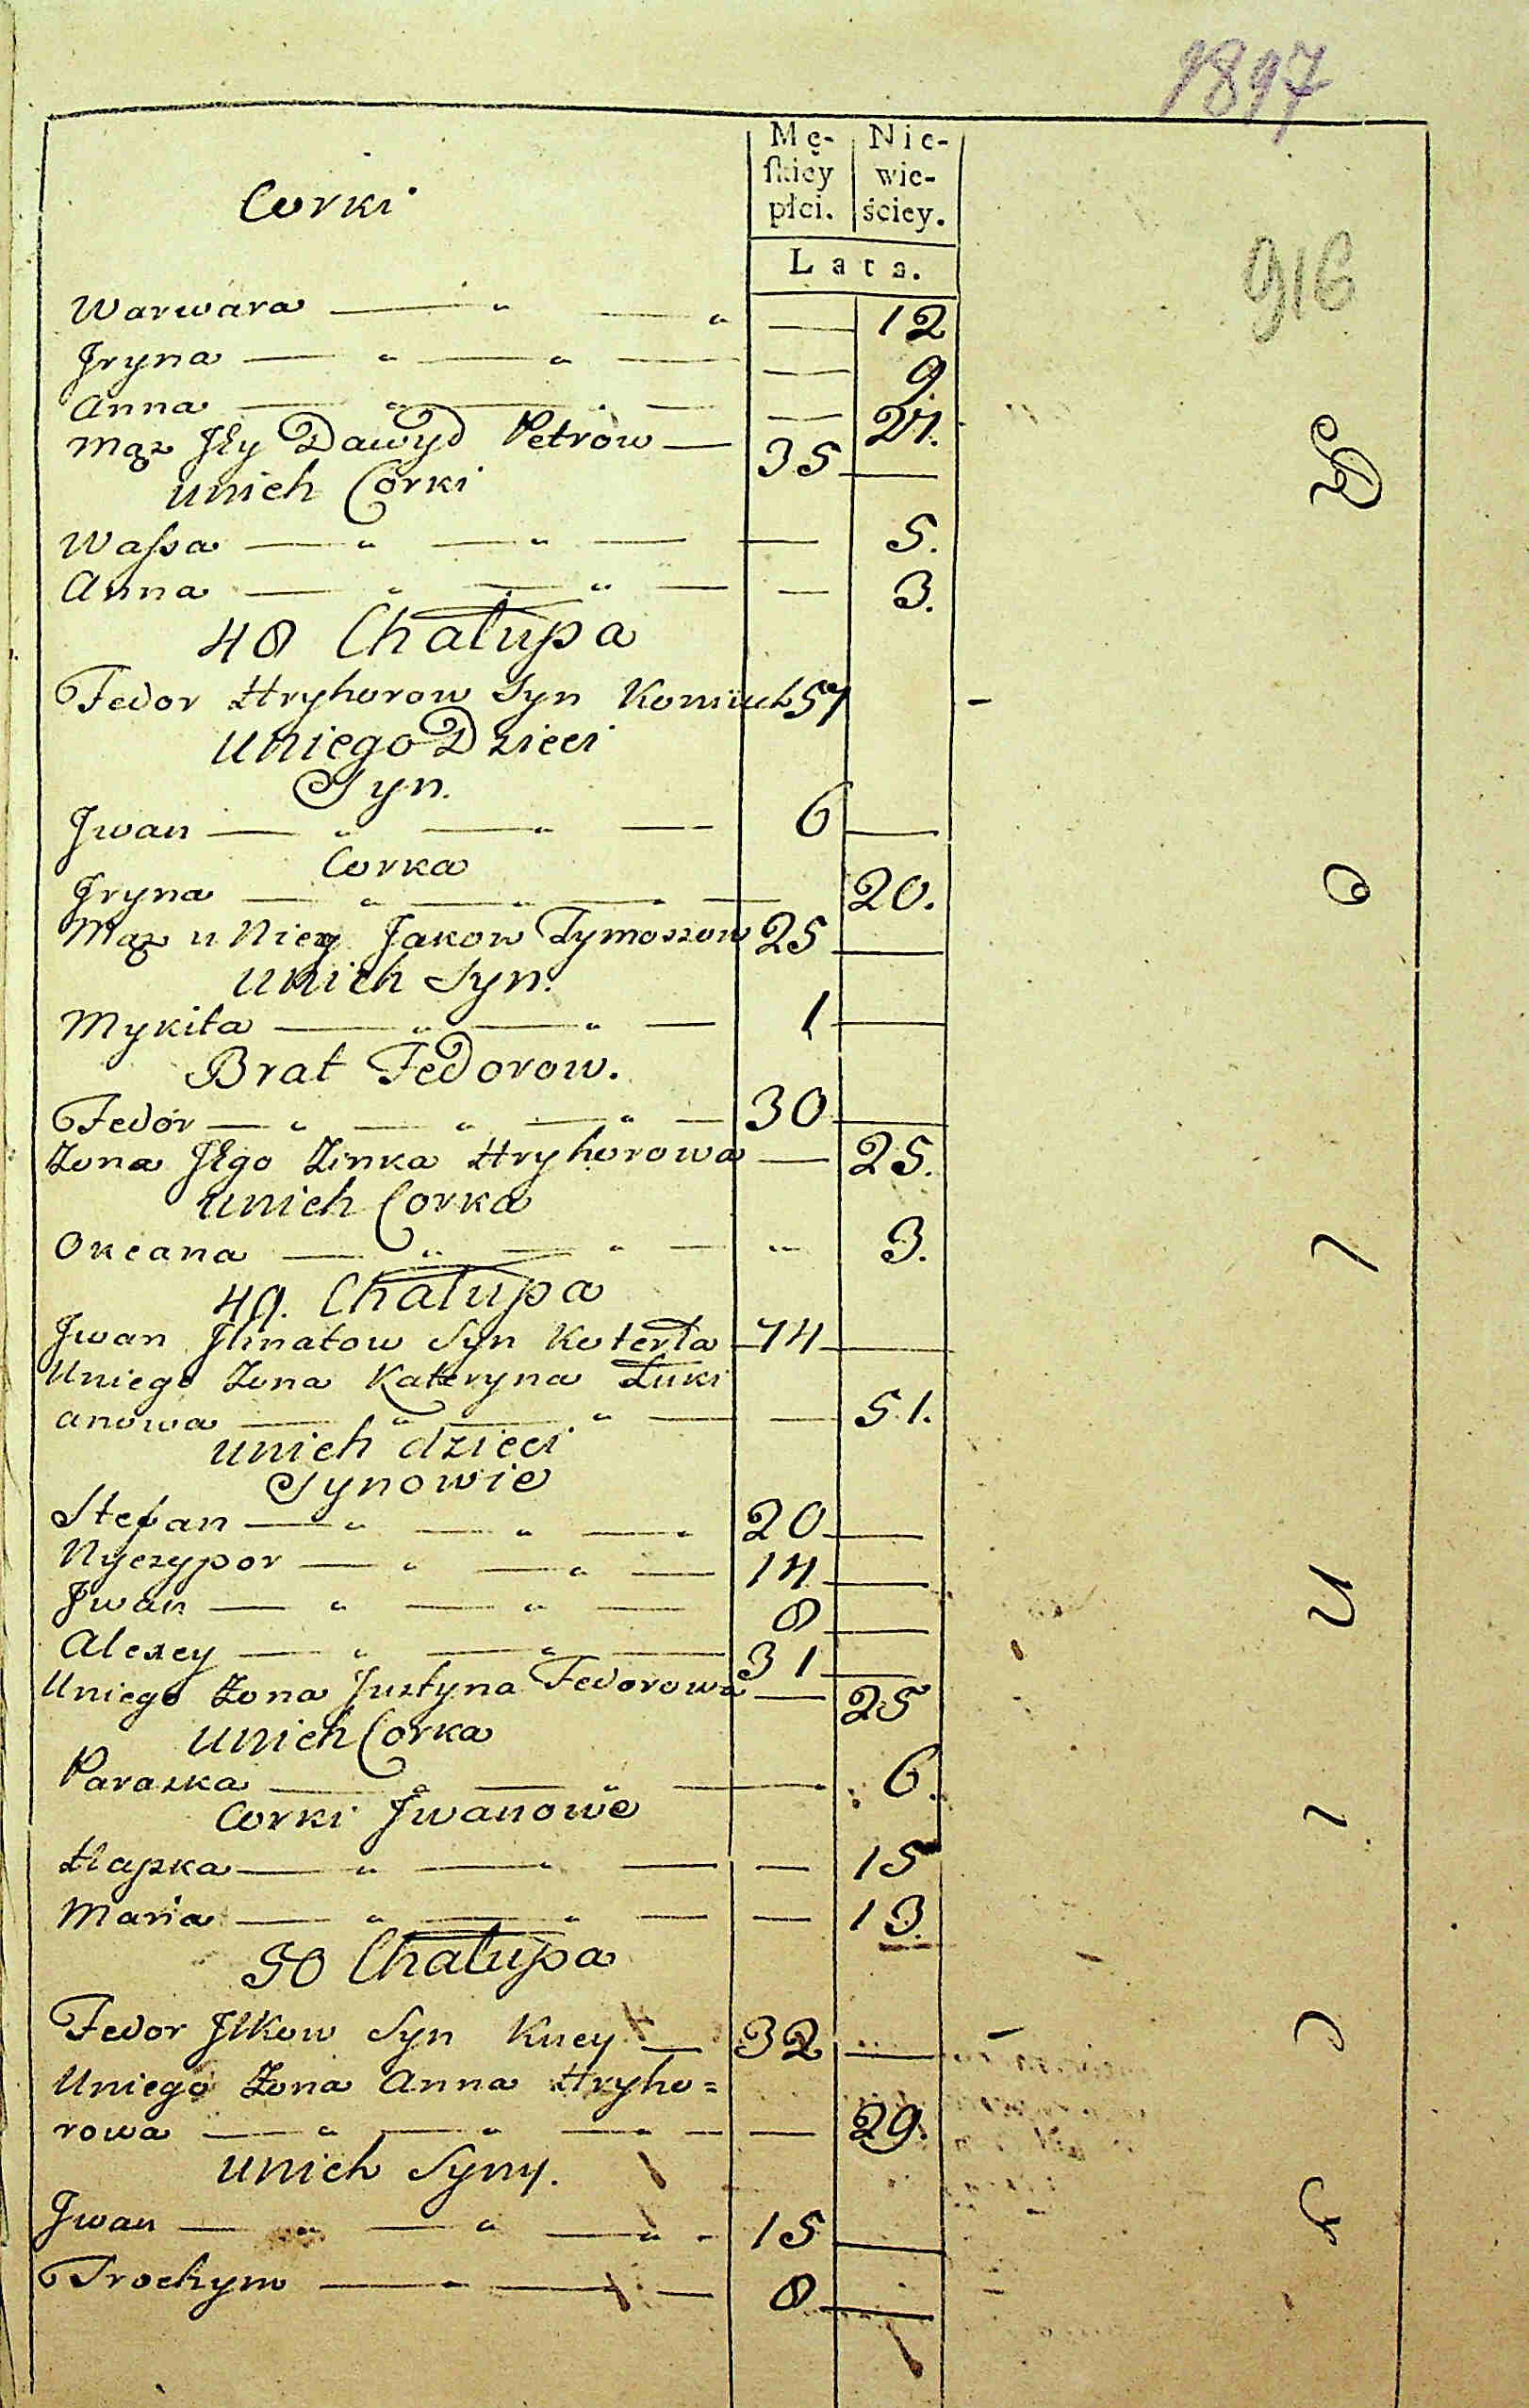 1897
Mę- Nie-
skiey wie-
płci. ściey.
Corki
Lata.
916
Warwara — " — " — 12
Jryna — " — " — — 9
Anna — " — — — 27.
Mąz Jey Dawyd Petrow — 35 —
unich Corki
Wassa — " — " — — 5.
Anna — " — " — — 3.
48 Chałupa
Fedor Hryhorow Syn Koniuch 57
uniego Dzieci
Syn.
Jwan — " — " — 6 —
Corka
Jryna — " — " — — 20.
Mąz u Niey Jakow Tymoszow 25 —
unich Syn.
Mykita — " — " — 1 —
Brat Fedorow.
Fedor — " — " — " — 30 —
Zona Jego Zinka Hryhorowa — 25.
unich Corka
Oxeana — " — " — " 3.
49. Chałupa
Jwan Jhnatow Syn Koterła 74 —
Uniego Zona Kateryna Łuki
anowa — " — " — — 51.
unich dzieci
Synowie
Stefan — " — " — 20 —
Nyczypor — " — " — 14 —
Jwan — " — " — 8 —
Alexey — " — " — 31 —
Uniego Zona Justyna Fedorowa — 25
unich Corka
Paraska — " — " — 6.
Corki Jwanowe
Hapka — " — " — — 15
Maria — " — " — — 13.
50 Chałupa
Fedor Jlkow Syn Kucy — 32 —
Uniego Zona Anna Hryho=
rowa — " — " — " — — 29.
unich Syny.
Jwan — " — " — " - 15 —
Trochym — " — — 8 —